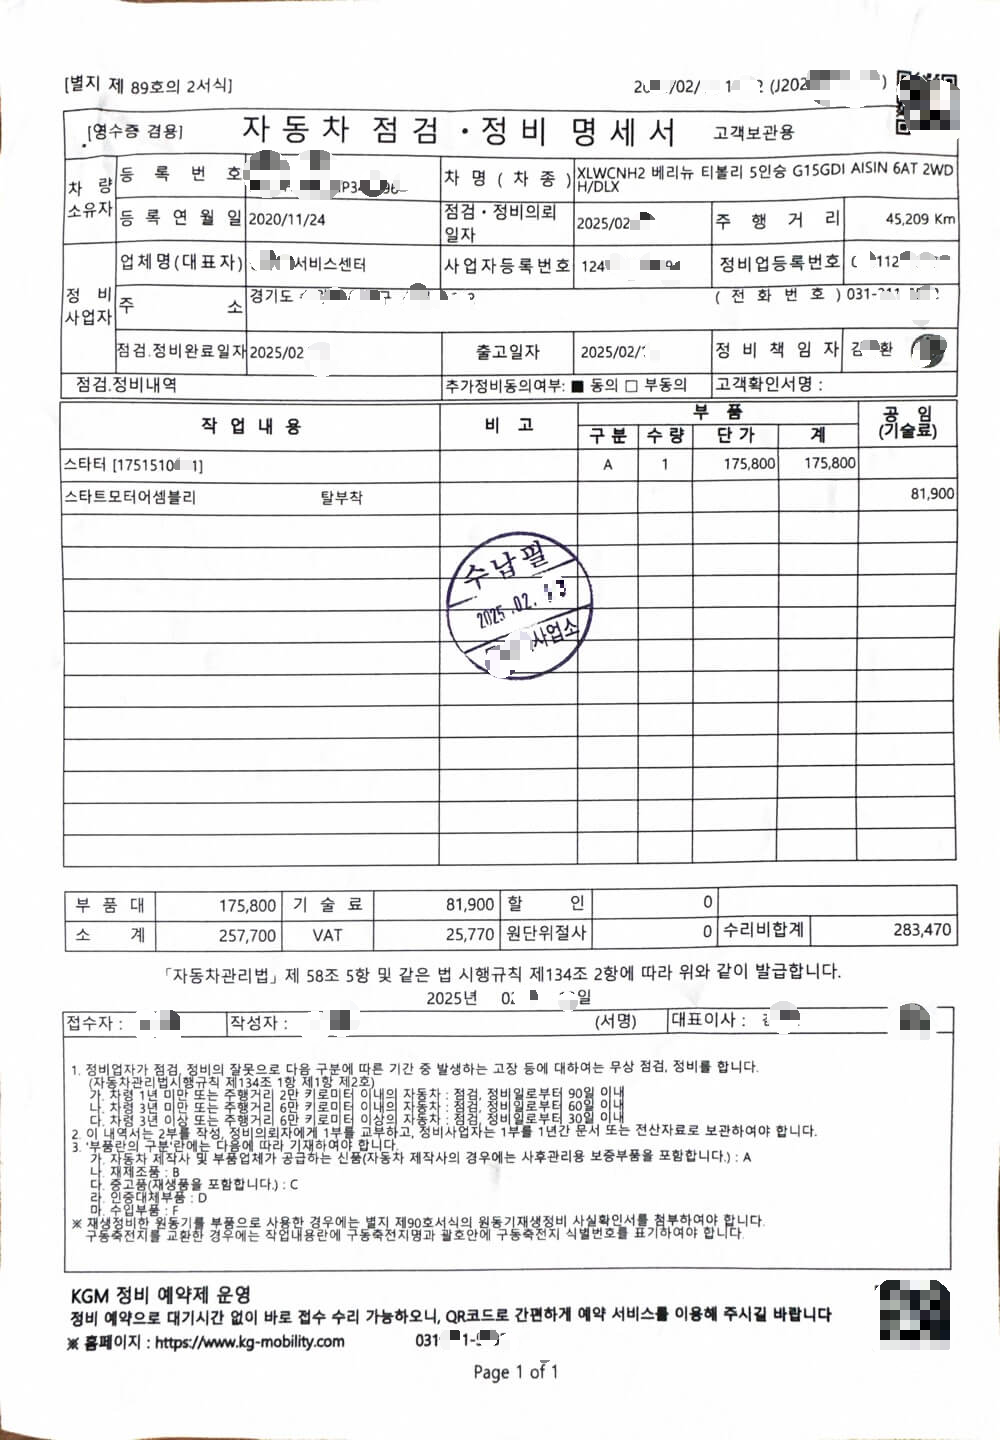 [별지 제 89호의 2서식]
[영수증 겸용] 자동차 점검·정비 명세서 고객보관용
차량 소유자
등록번호
차명(차종) XLWCNH2 베리뉴 티볼리 5인승 G15GDI AISIN 6AT 2WD H/DLX
등록연월일 2020/11/24 점검·정비의뢰일자 2025/02 주행거리 45,209 Km
정비 사업자
업체명(대표자) 서비스센터 사업자등록번호 124 정비업등록번호
주소 경기도 (전화번호) 031-
점검.정비완료일자 2025/02 출고일자 2025/02/ 정비책임자
점검.정비내역 추가정비동의여부: ■ 동의 □ 부동의 고객확인서명 :
작업내용 비고 부품 공임(기술료)
구분 수량 단가 계
스타터 [1751510 1] A 1 175,800 175,800
스타트모터어셈블리 탈부착 81,900
수납필
2025.02.
사업소
부품대 175,800 기술료 81,900 할인 0
소계 257,700 VAT 25,770 원단위절사 0 수리비합계 283,470
「자동차관리법」제 58조 5항 및 같은 법 시행규칙 제134조 2항에 따라 위와 같이 발급합니다.
2025년 일
접수자 : 작성자 : (서명) 대표이사 :
1. 정비업자가 점검, 정비의 잘못으로 다음 구분에 따른 기간 중 발생하는 고장 등에 대하여는 무상 점검, 정비를 합니다.
(자동차관리법시행규칙 제134조 1항 제1항 제2호)
가. 차령 1년 미만 또는 주행거리 2만 키로미터 이내의 자동차 : 점검, 정비일로부터 90일 이내
나. 차령 3년 미만 또는 주행거리 6만 키로미터 이내의 자동차 : 점검, 정비일로부터 60일 이내
다. 차령 3년 이상 또는 주행거리 6만 키로미터 이상의 자동차 : 점검, 정비일로부터 30일 이내
2. 이 내역서는 2부를 작성, 정비의뢰자에게 1부를 교부하고, 정비사업자는 1부를 1년간 문서 또는 전산자료로 보관하여야 합니다.
3. '부품란의 구분'란에는 다음에 따라 기재하여야 합니다.
가. 자동차 제작사 및 부품업체가 공급하는 신품(자동차 제작사의 경우에는 사후관리용 보증부품을 포함합니다.) : A
나. 재제조품 : B
다. 중고품(재생품을 포함합니다.) : C
라. 인증대체부품 : D
마. 수입부품 : F
※ 재생정비한 원동기를 부품으로 사용한 경우에는 별지 제90호서식의 원동기재생정비 사실확인서를 첨부하여야 합니다.
구동축전지를 교환한 경우에는 작업내용란에 구동축전지명과 괄호안에 구동축전지 식별번호를 표기하여야 합니다.
KGM 정비 예약제 운영
정비 예약으로 대기시간 없이 바로 접수 수리 가능하오니, QR코드로 간편하게 예약 서비스를 이용해 주시길 바랍니다
※ 홈페이지 : https://www.kg-mobility.com 031
Page 1 of 1